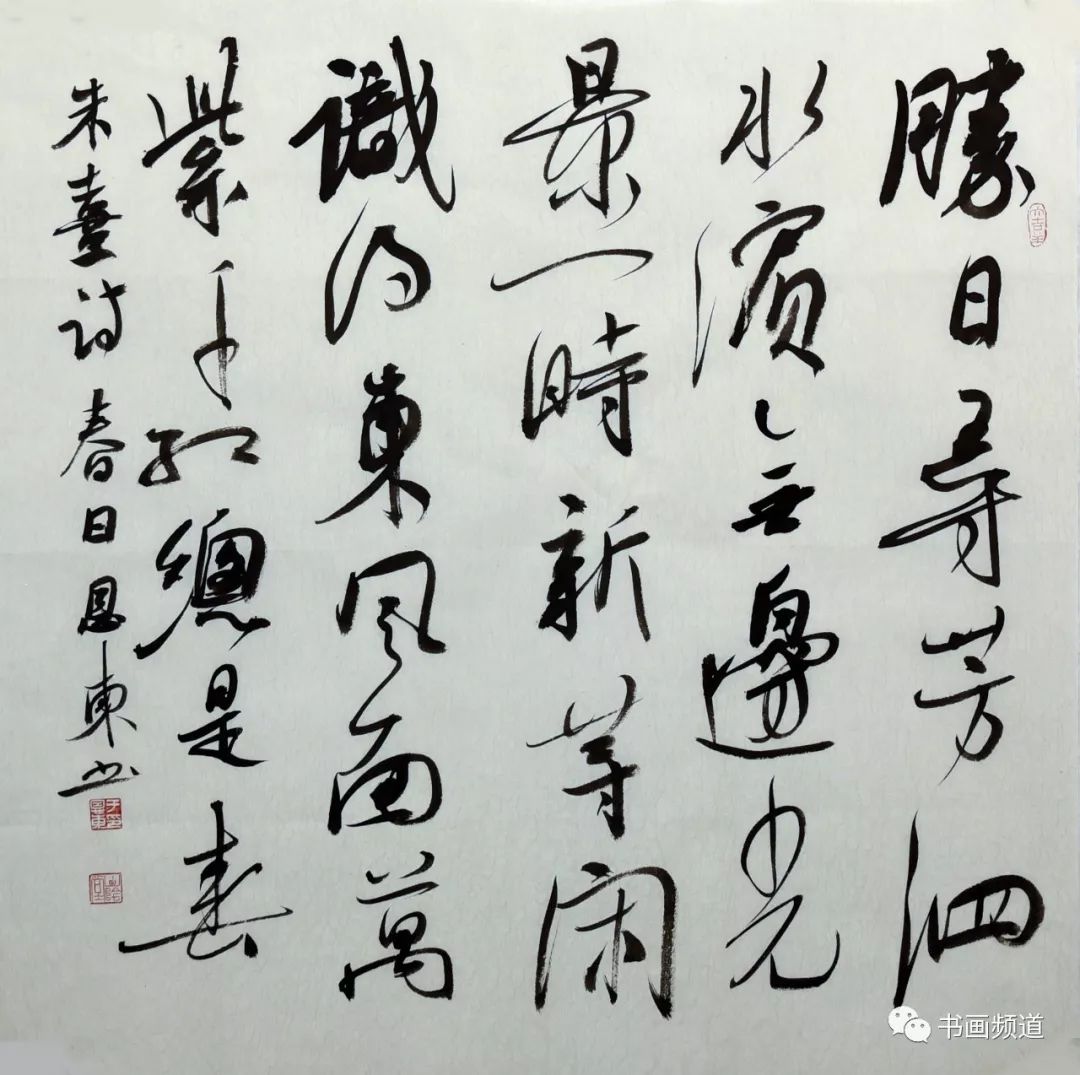 勝日尋芳泗
水濱無邊光
景一時新等闲
識得東風面萬
紫千紅總是春
朱熹诗春日恩東书
书画频道